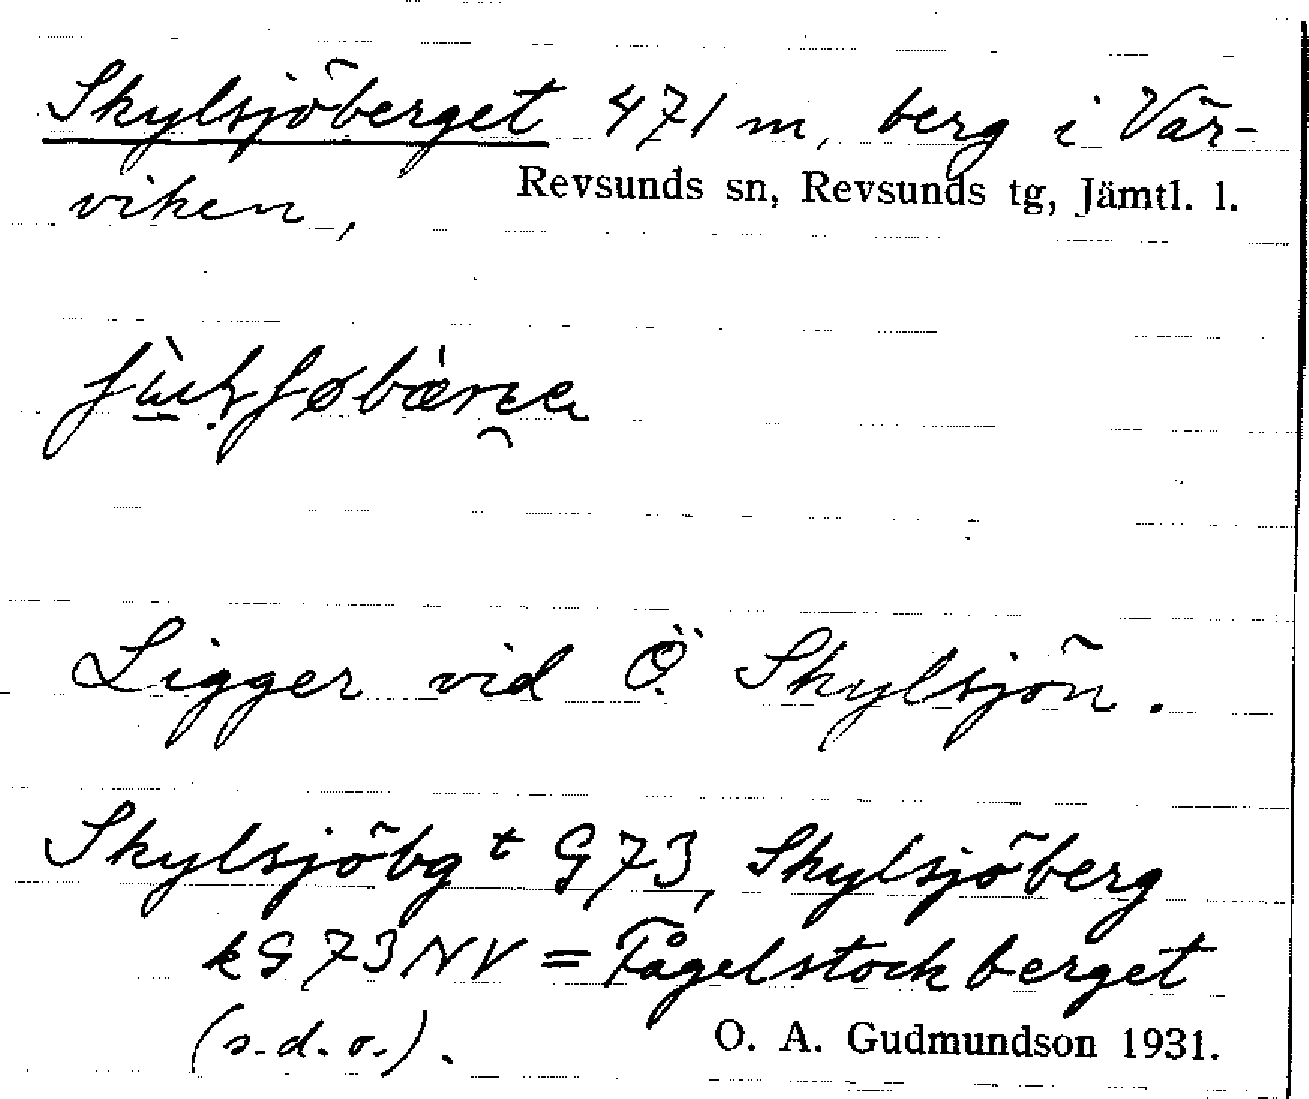 Skylsjöberget 471 m, berg i Vär-
viken, Revsunds sn, Revsunds tg, Jämtl. l.
Ligger vid Ö. Skylsjön.
Skylsjöbgt G73, Skylsjöberg
kG73NV = Fågelstockberget
(s.d.o.).
O. A. Gudmundson 1931.